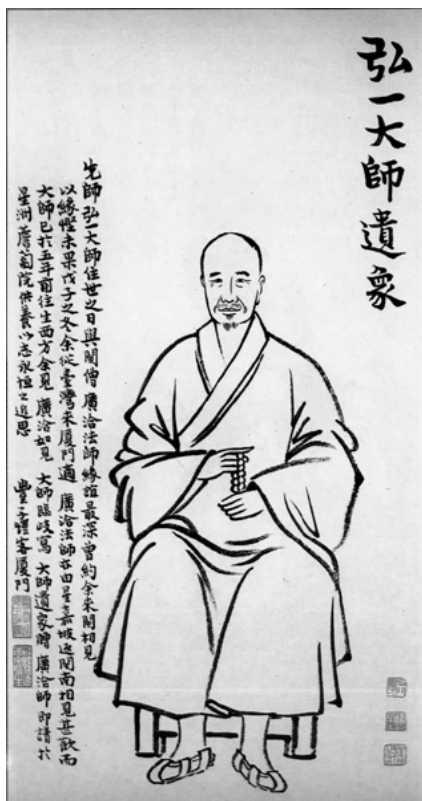 弘一大師遺象
先師弘一大師住世之日與閩僧廣洽法師緣誼最深曾約余來閩相見
以緣慳未果戊子之冬余從臺灣來厦門適 廣洽法師亦由星嘉坡返閩南相見甚歡而
大師已於五年前往生西方余見 廣洽如見 大師臨歧寫 大師遺象贈 廣洽師即請於
星洲薝蔔院供養以志永恒之追思 豐子愷客厦門